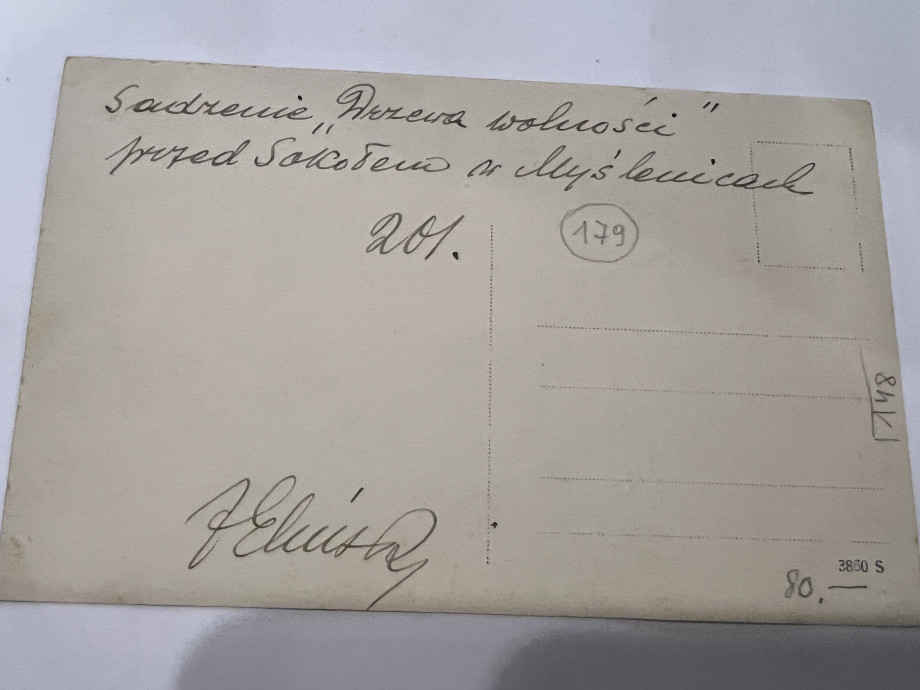 Sadzenie „Drzewa wolności"
przed Sokołem w Myślenicach
201.
179
3860 S
80.—